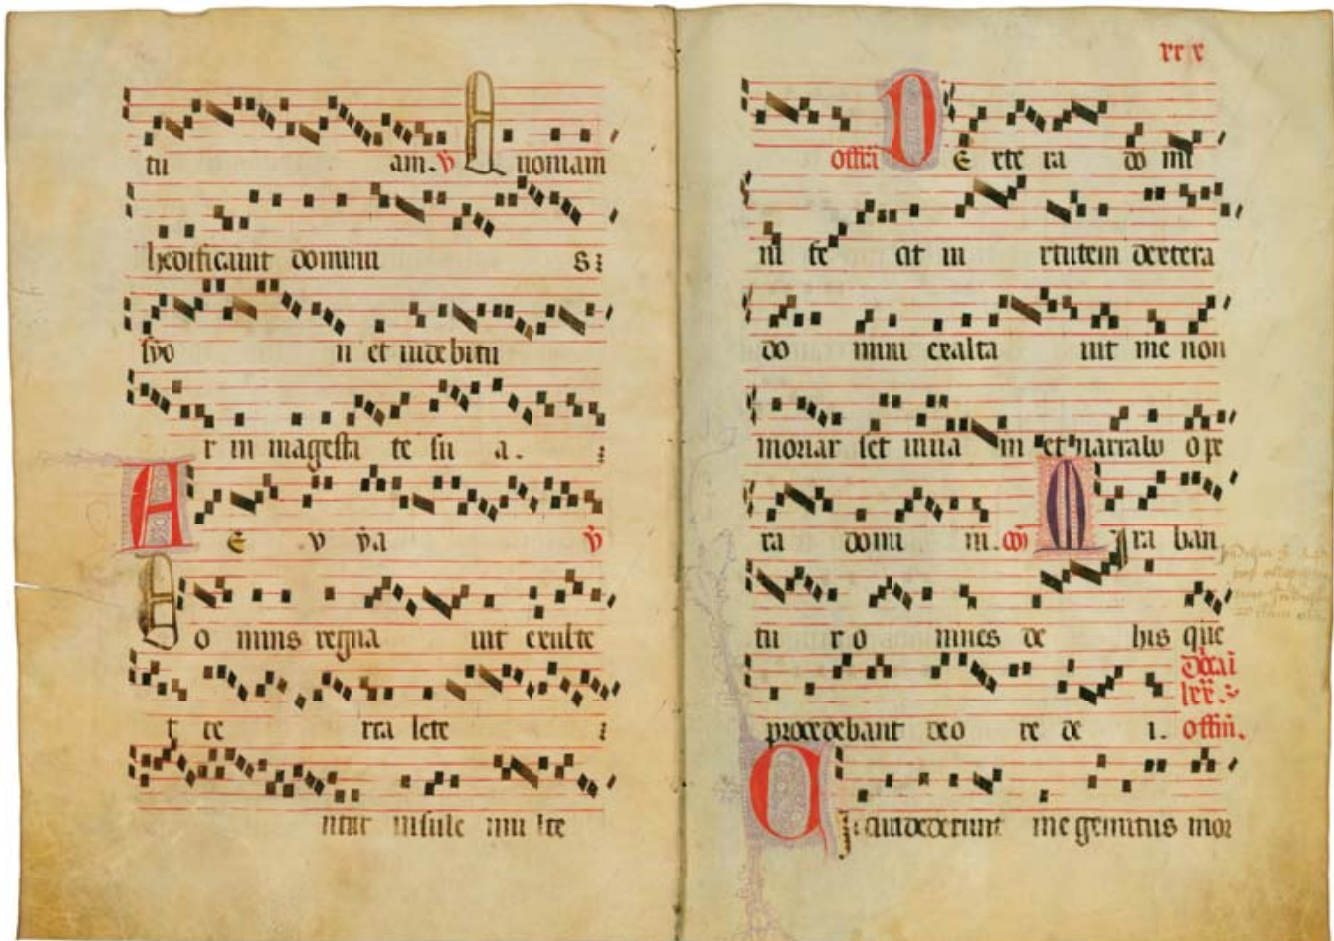 tu am. ꝟ noniam
hedificauit dominu s:
syo n et uidebitu
r in magesta te su a. :
A E v ya ꝟ
D o minus regna uit exulte
t te rra lete :
ntur insule mul te
rrx
offm̄ D E xte ra do mi
ni fe cit ui rtutem dextera
do mini exalta uit me non
moriar set uiua m et narrabo ope
ra domi ni. cō M ira ban
tu r o mnes de his que
procedebant de o re de i. offm̄.
C i cumdederunt me gemitus mor